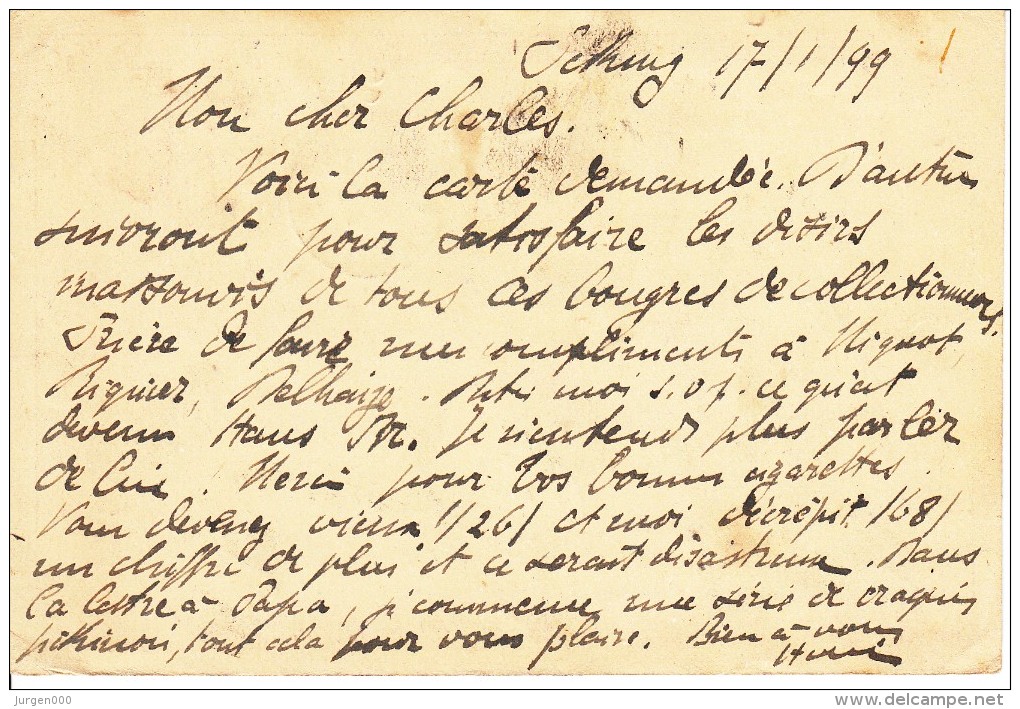 Péking 17/1/99
Mon cher Charles.
Voici la carte demandée. D'autres
suivront pour satisfaire les désirs
inassouvis de tous ces bougres de collectionneurs.
Prière de faire mes compliments à Mignot,
Riquier, Delhaize. Dites moi s.v.p. ce qu'est
devenu Hans St. Je n'entends plus parler
de lui. Merci pour vos bonnes cigarettes.
Vous devenez vieux !/26/ et moi décrépit /68/
un chiffre de plus et ce serait désastreux. Dans
la lettre à Papa, je commence une série de craquis
pékinois, tout cela pour vous plaire. Bien à vous
Henri
jurgen000
delcampe.net